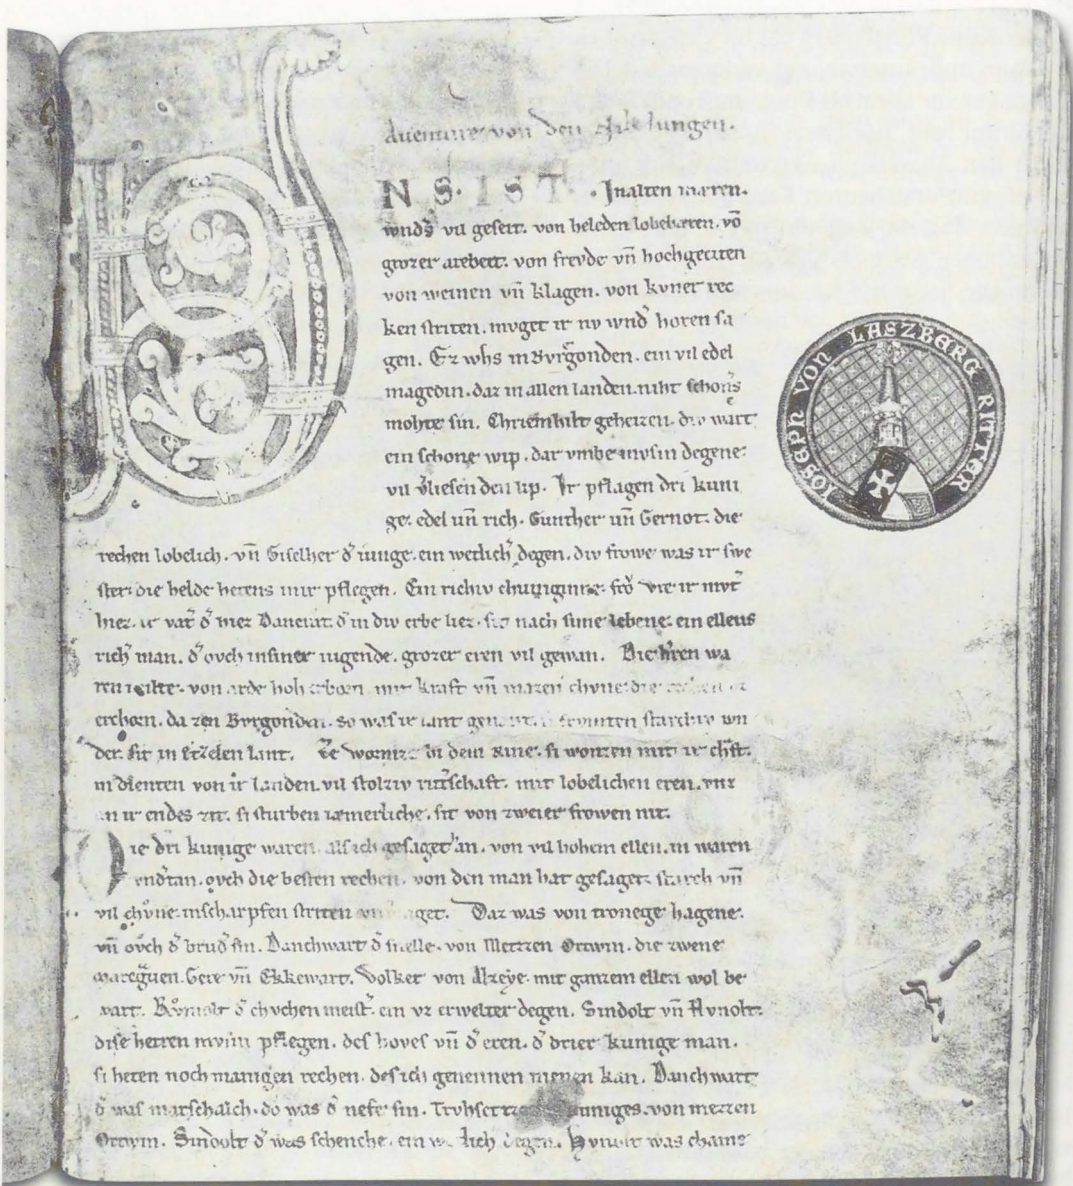 Auenture von den Nibelungen.
VNS. IST. Jn alten mæren.
wnds vil geseit. von heleden lobebæren. vō
grozer arebeit. von frevde vn̄ hochgeciten
von weinen vn̄ klagen. von kvner rec
ken striten. mvget ir nv wnd horen sa
gen. Ez whs in Bvrgonden. ein vil edel
magedin. daz in allen landen. niht schoners
mohte sin. Chriemhilt geheizen. div wart
ein schone wip. dar vmbe mvsin degene
vil vliesen den lip. Jr pflagen dri kuni
ge. edel vn̄ rich. Gunther vn̄ Gernot. die
rechen lobelich. vn̄ Giselher d̾ iunge. ein wetlich̾ degen. div frowe was ir swe
ster. die helde hetens inir pflegen. Ein richiv chuniginne. frō Vte ir mvt̾
hiez. ir vat̾ d̾ hiez Dancrat. d̾ in div erbe liez. sit nach sime lebene. ein ellens
rich̾ man. d̾ ovch in siner iugende. grozer eren vil gewan. Die h̾ren wa
ren milte. von arde hoh erborn. mit kraft vn̄ mazen chvne. die
erchorn. da zen Bvrgonden. so was ir lant genant. si frvmten starchiv wn
der. sit in Etzelen lant. Ze Wormze bi dem Rine. si wonten mit ir chraft.
in dienten von ir landen. vil stolziv ritt̾schaft. mit lobelichen eren. vnz
an ir endes zit. si sturben iæmerliche. sit von zweier frowen nit.
Die dri kunige waren. als ich gesaget han. von vil hohem ellen. in waren
vnd̾tan. ovch die besten rechen. von den man hat gesaget. starch vn̄
vil chvne. in scharpfen striten vnverzaget. Daz was von tronege hagene.
vn̄ ovch d̾ brud̾ sin. Danchwart d̾ snelle. von Metzen Ortwin. die zwene
marcgven. Gere vn̄ Ekkewart. Volker von Alzeye. mit ganzem ellen wol be
wart. Rvmolt d̾ chvchen meist̾. ein vz erwelter degen. Sindolt vn̄ Hvnolt.
dise herren mvsin pflegen. des hoves vn̄ d̾ eren. d̾ drier kunige man.
si heten noch manigen rechen. des ich genennen nienen kan. Danchwart
d̾ was marschalch. do was d̾ nefe sin. Trvhsetze des kuniges. von metzen
Ortwin. Sindolt d̾ was schenche. ein wetlich degen. Hvnolt was chame
JOSEPH VON LASZBERG RITTER